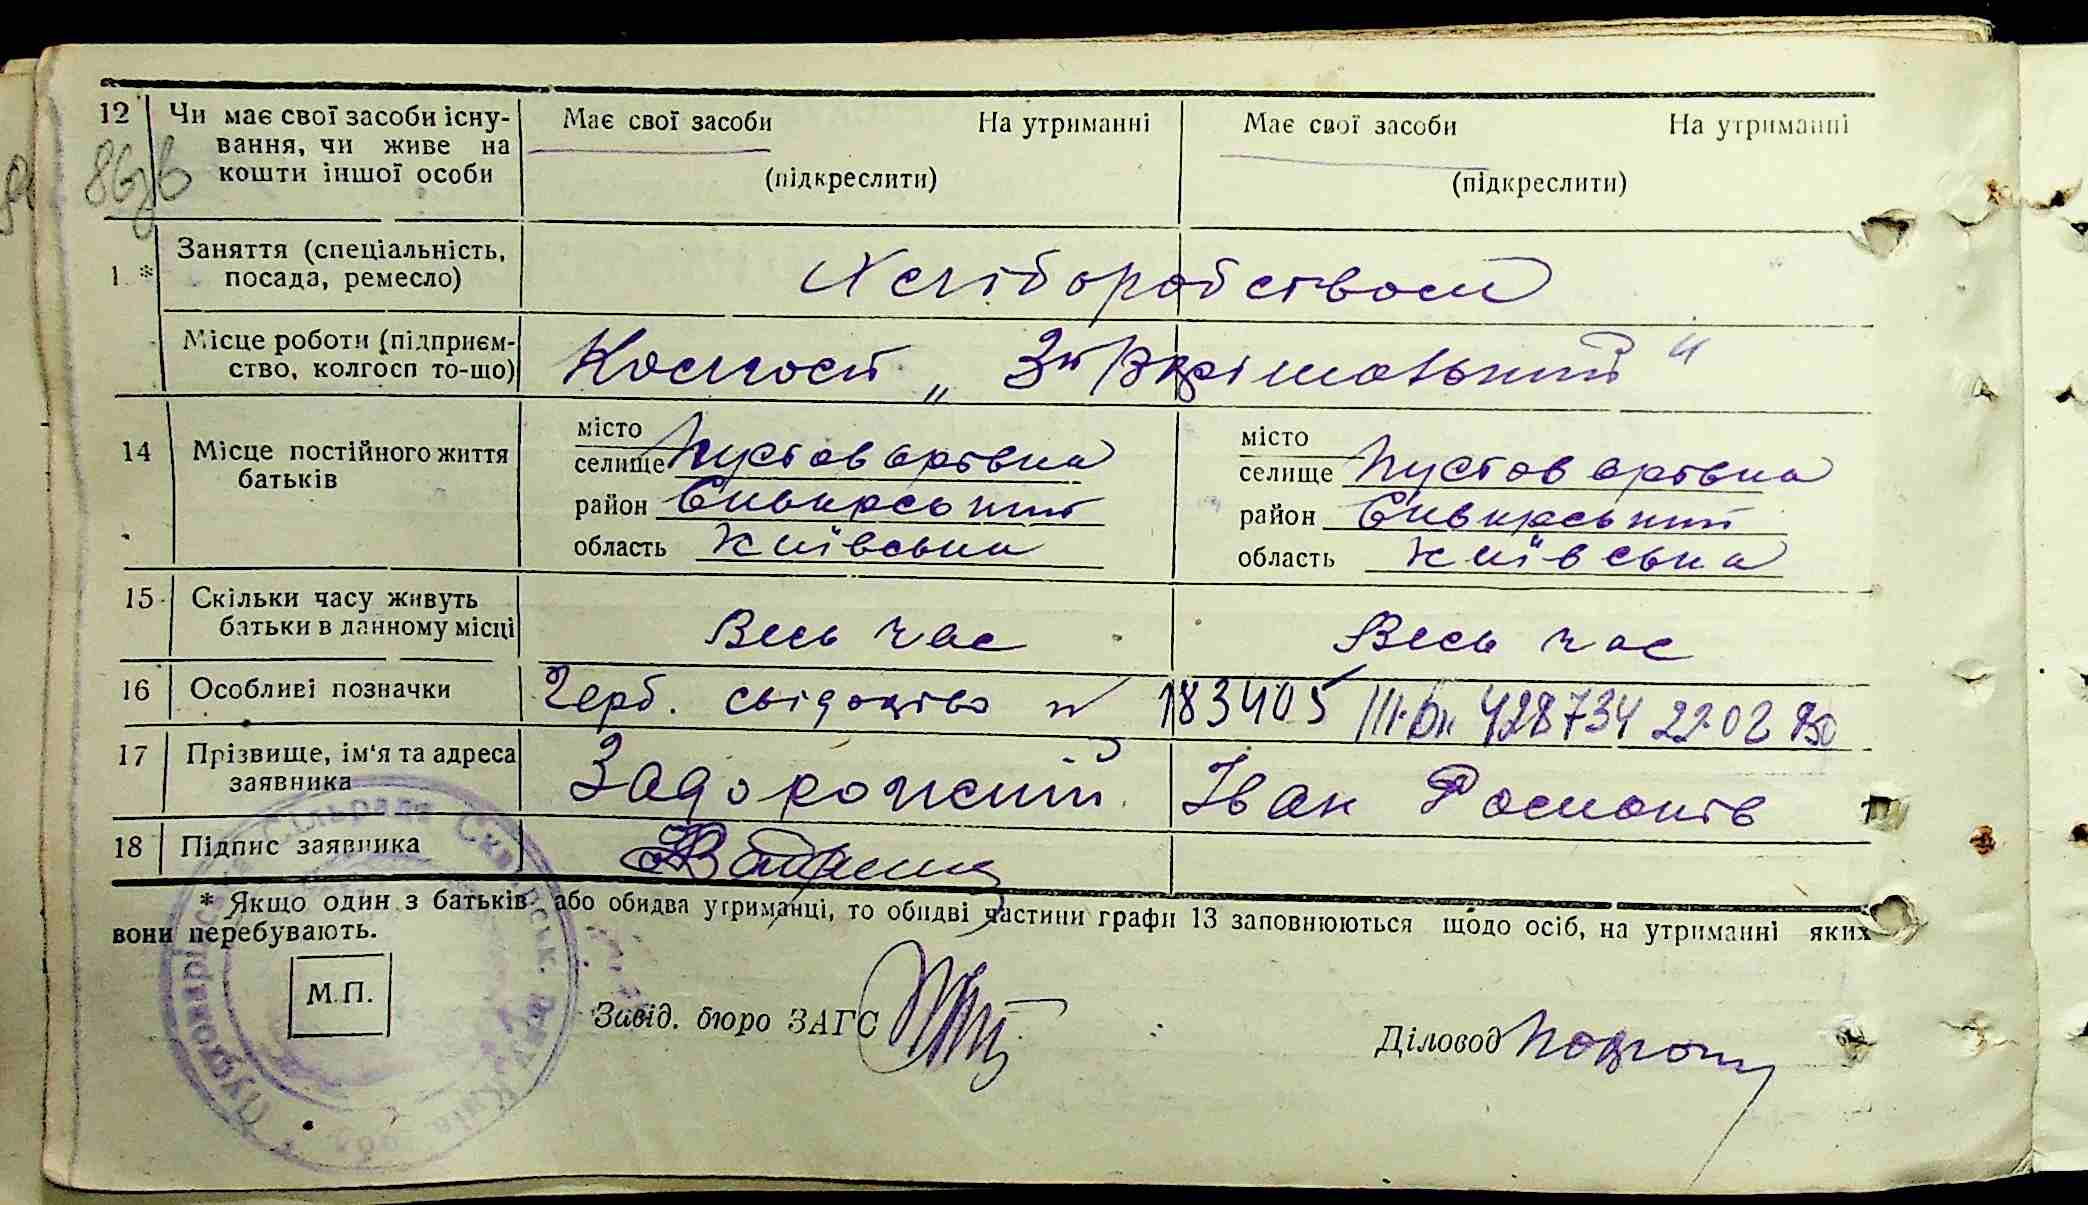 12 Чи має свої засоби існу-
вання, чи живе на
кошти іншої особи
Має свої засоби На утриманні
(підкреслити)
Має свої засоби На утриманні
(підкреслити)
86зв
1 * Заняття (спеціальність,
посада, ремесло)
Хсліборобством
Місце роботи (підприєм-
ство, колгосп то-що)
Колгосп „
14 Місце постійного життя
батьків
місто
селище Пустоварівка
район Сквирський
область Київська
місто
селище Пустоварівка
район Сквирський
область Київська
15 Скільки часу живуть
батьки в данному місці
Весь час Весь час
16 Особливі позначки
Герб. свідоцтво № 183405 428734 22.02
17 Прізвище, ім'я та адреса
заявника
Задорожний Іван
18 Підпис заявника
* Якщо один з батьків або обидва утриманці, то обидві частини графи 13 заповнюються щодо осіб, на утриманні яких
вони перебувають.
М.П.
Завід. бюро ЗАГС
Діловод
Сільрада Сквирськ. р-ну Київ. обл.